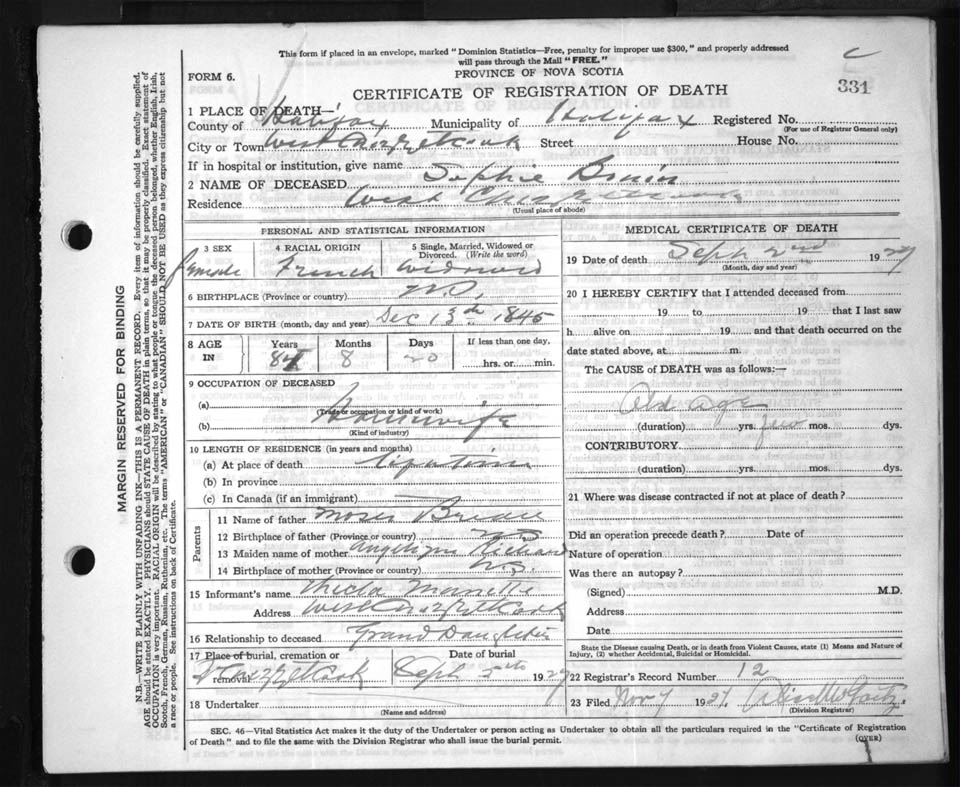 This form if placed in an envelope, marked "Dominion Statistics—Free, penalty for improper use $300," and properly addressed
will pass through the Mail "FREE."
FORM 6.
PROVINCE OF NOVA SCOTIA
CERTIFICATE OF REGISTRATION OF DEATH
331
1 PLACE OF DEATH—
County of Halifax Municipality of Halifax Registered No.
(For use of Registrar General only)
City or Town West Chezzetcook Street House No.
If in hospital or institution, give name
2 NAME OF DECEASED Sophie
Residence West
(Usual place of abode)
PERSONAL AND STATISTICAL INFORMATION
3 SEX 4 RACIAL ORIGIN 5 Single, Married, Widowed or Divorced. (Write the word)
female French widowed
6 BIRTHPLACE (Province or country) N.S.
7 DATE OF BIRTH (month, day and year) Dec 13th 1845
8 AGE IN Years Months Days If less than one day.
8 20 hrs. or min.
9 OCCUPATION OF DECEASED
(a)
(Trade or occupation or kind of work)
(b) Housewife
(Kind of industry)
10 LENGTH OF RESIDENCE (in years and months)
(a) At place of death lifetime
(b) In province
(c) In Canada (if an immigrant)
Parents
11 Name of father Moses
12 Birthplace of father (Province or country) N.S.
13 Maiden name of mother Richard
14 Birthplace of mother (Province or country) N.S.
15 Informant's name
Address West Chezzetcook
16 Relationship to deceased Grand Daughter
17 Place of burial, cremation or removal Date of burial
Chezzetcook Sept 5th 1927
18 Undertaker
(Name and address)
MEDICAL CERTIFICATE OF DEATH
19 Date of death Sept 2nd 1927
(Month, day and year)
20 I HEREBY CERTIFY that I attended deceased from
19 to 19 that I last saw
h alive on 19 and that death occurred on the
date stated above, at m.
The CAUSE of DEATH was as follows:—
Old age
(duration) yrs. few mos. dys.
CONTRIBUTORY
(duration) yrs. mos. dys.
21 Where was disease contracted if not at place of death?
Did an operation precede death? Date of
Nature of operation
Was there an autopsy?
(Signed) M.D.
Address
Date
State the Disease causing Death, or in death from Violent Causes, state (1) Means and Nature of
Injury, (2) whether Accidental, Suicidal or Homicidal.
22 Registrar's Record Number 12
23 Filed Nov 7 1927
(Division Registrar)
SEC. 46—Vital Statistics Act makes it the duty of the Undertaker or person acting as Undertaker to obtain all the particulars required in the "Certificate of Registration
of Death" and to file the same with the Division Registrar who shall issue the burial permit.
(OVER)
MARGIN RESERVED FOR BINDING
N.B.—WRITE PLAINLY WITH UNFADING INK—THIS IS A PERMANENT RECORD. Every item of information should be carefully supplied.
AGE should be stated EXACTLY. PHYSICIANS should STATE CAUSE OF DEATH in plain terms, so that it may be properly classified. Exact statement of
OCCUPATION is very important. RACIAL ORIGIN will be described by stating to what people or tongue the deceased person belonged, whether English, Irish,
Scotch, French, German, Russian, Ruthenian, etc. The terms "AMERICAN" or "CANADIAN" SHOULD NOT BE USED as they express citizenship but not
a race or people. See instructions on back of Certificate.